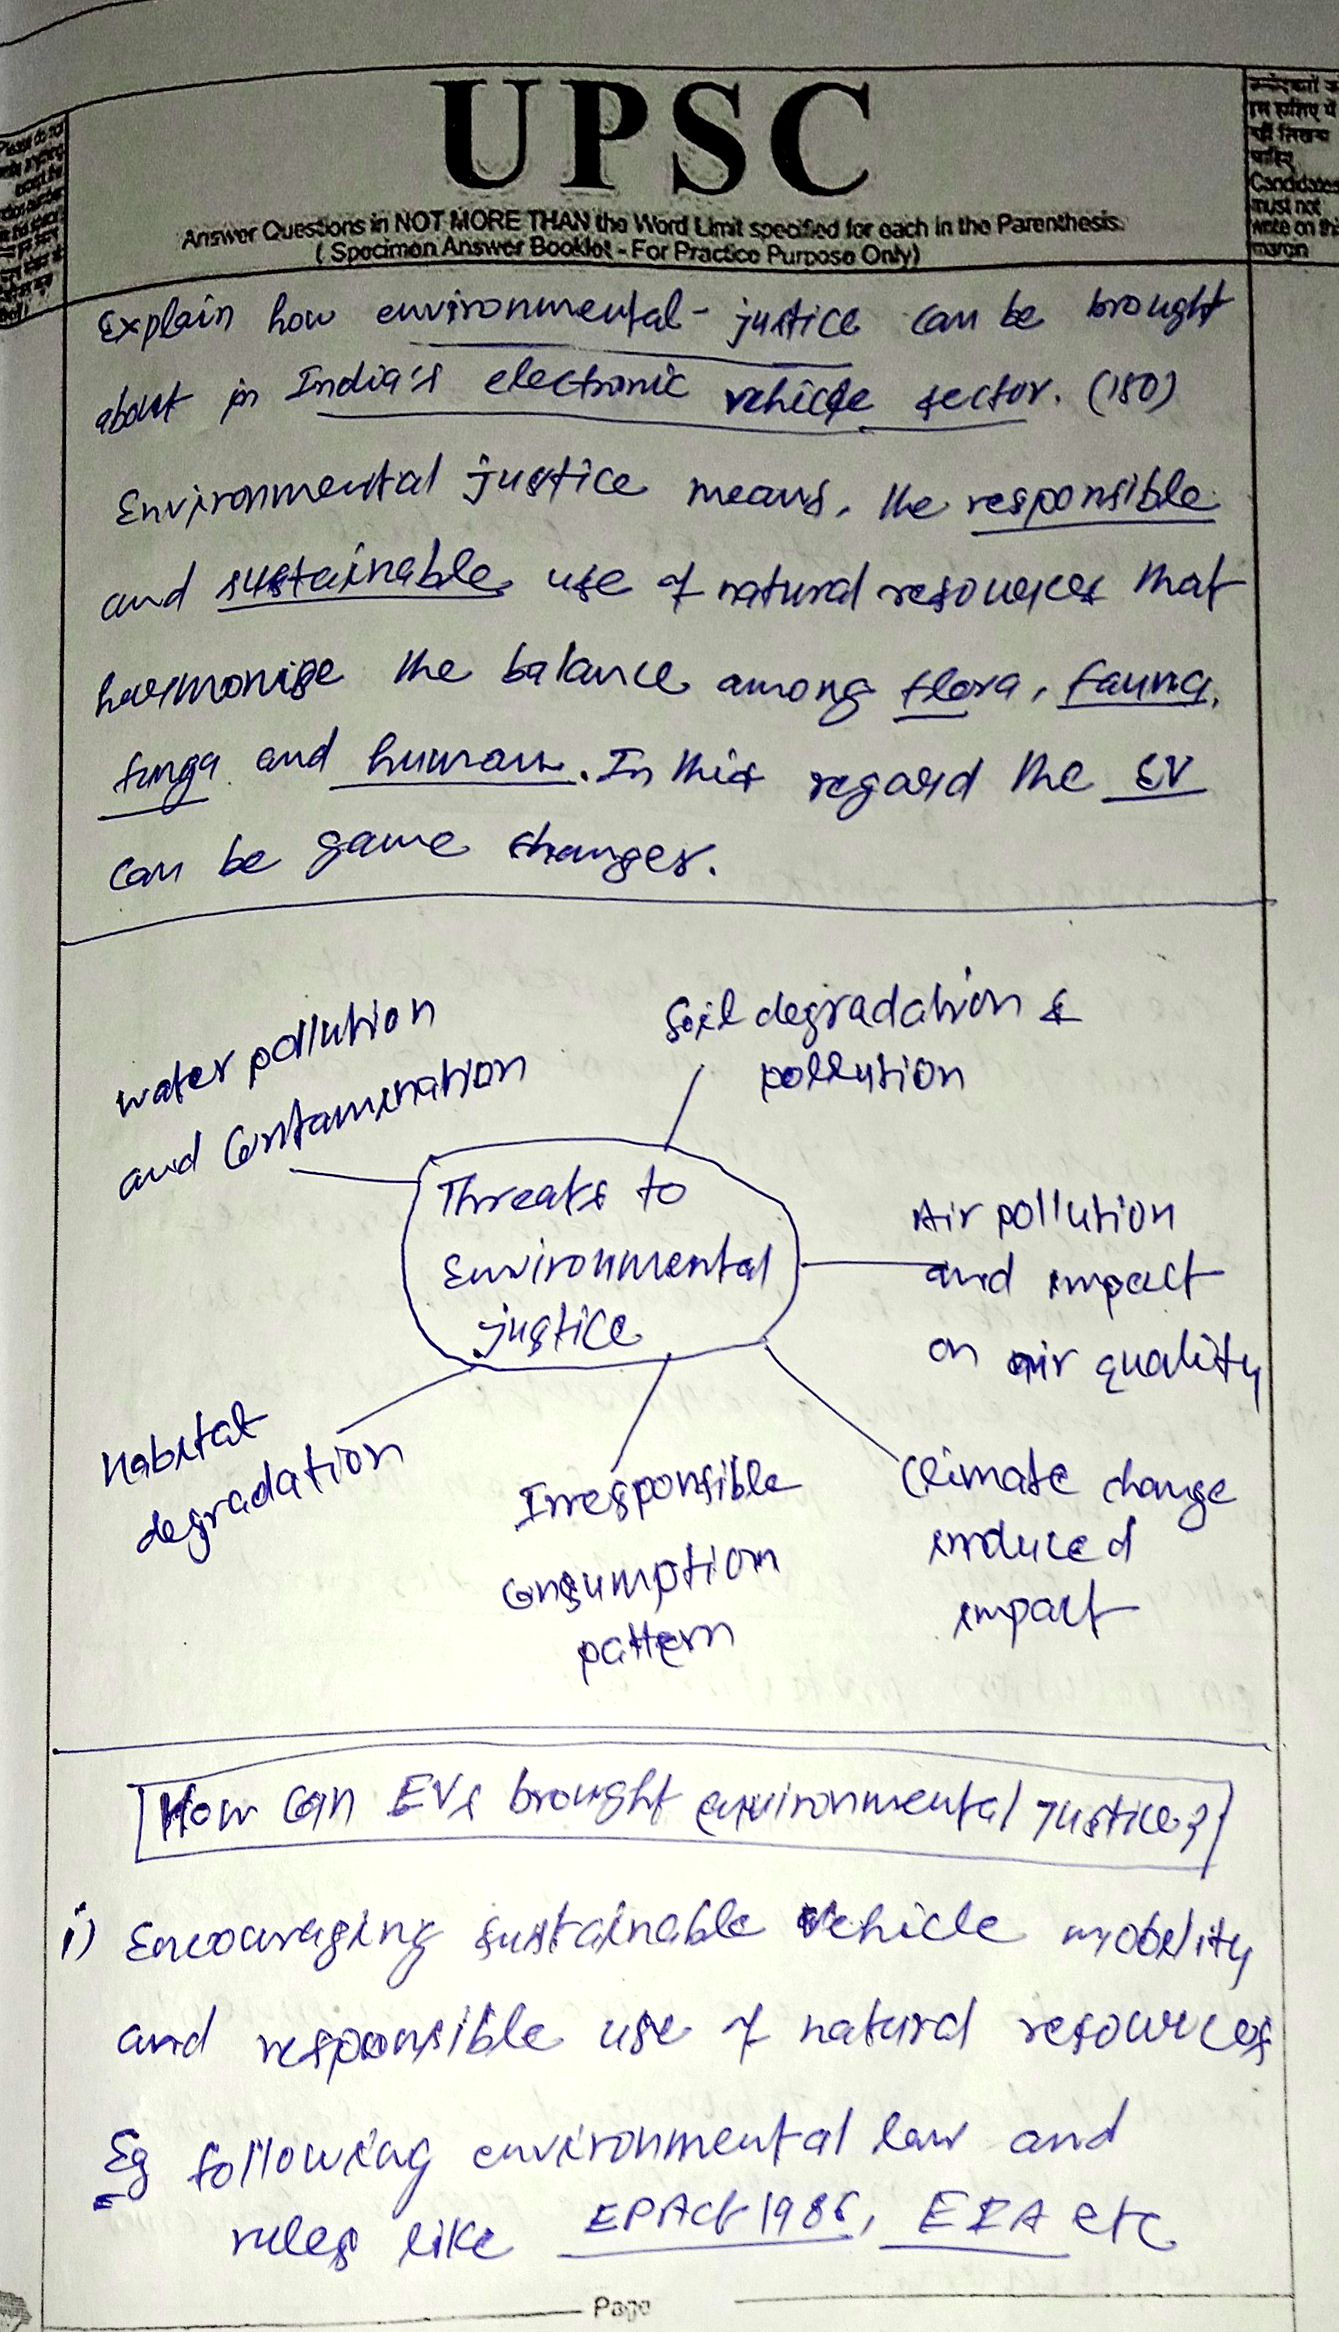 UPSC
Answer Questions in NOT MORE THAN the Word Limit specified for each in the Parenthesis.
( Specimen Answer Booklet - For Practice Purpose Only)
Candidates
must not
write on the
margin
Explain how environmental - justice can be brought
about in India's electronic vehicle sector. (150)
Environmental justice means, the responsible
and sustainable use of natural resources that
harmonise the balance among flora, fauna,
funga and human. In this regard the EV
can be game changer.
water pollution
and contamination
Soil degradation &
pollution
Threats to
Environmental
justice
Air pollution
and impact
on air quality
Habitat
degradation
Irresponsible
consumption
pattern
Climate change
induced
impact
How can EVs brought environmental justice?
i) Encouraging sustainable vehicle mobility
and responsible use of natural resources
Eg following environmental law and
rules like EPAct 1986, EIA etc
Page